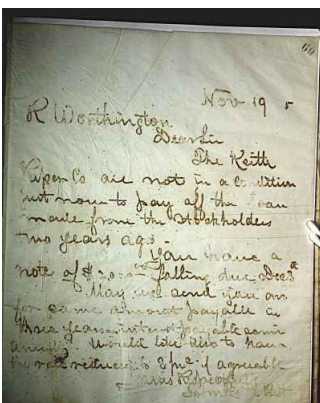 60
Nov 19 5
R Worthington
Dear Sir
The Keith
Paper Co are not in a condition
just now to pay off the loan
made from the Stockholders
two years ago.
You have a
note of falling due Dec 3
May we send you on
for same amount payable in
three years interest payable semi
annual would like also to have
the rate reduced to if agreeable
Yours Respectfully